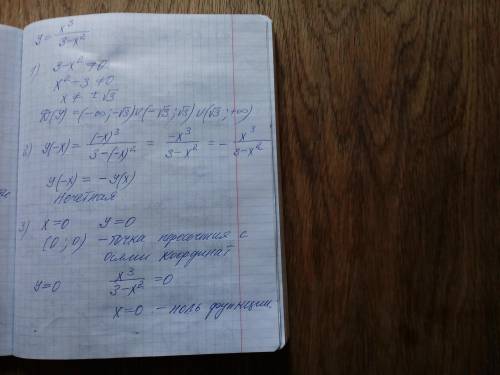 y = x³/(3-x²)
1) 3-x² ≠ 0
x² - 3 ≠ 0
x ≠ ±√3
D(y) = (-∞; -√3) ∪ (-√3; √3) ∪ (√3; +∞)
2) y(-x) = (-x)³/(3-(-x)²) = -x³/(3-x²) = - x³/(3-x²)
y(-x) = -y(x)
Нечетная
3) x=0 y=0
(0; 0) - точка пересечения с
осями координат
y=0 x³/(3-x²) = 0
x=0 - ноль функции